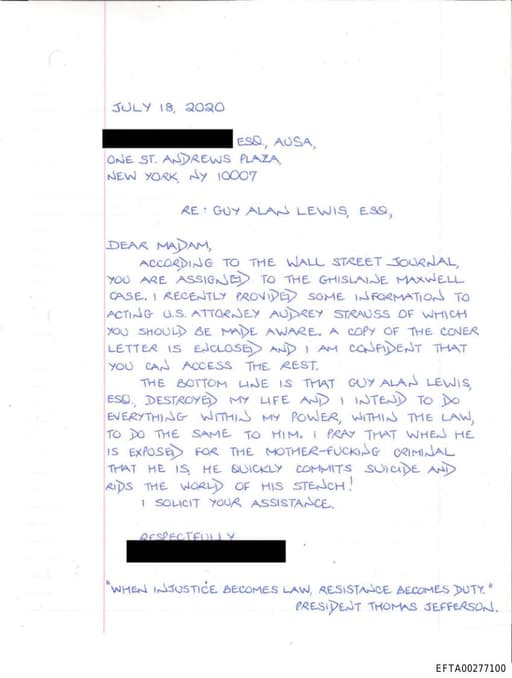 JULY 18, 2020
ESQ., AUSA,
ONE ST. ANDREWS PLAZA,
NEW YORK, NY 10007
RE: GUY ALAN LEWIS, ESQ,
DEAR MADAM,
ACCORDING TO THE WALL STREET JOURNAL,
YOU ARE ASSIGNED TO THE GHISLAINE MAXWELL
CASE. I RECENTLY PROVIDED SOME INFORMATION TO
ACTING U.S. ATTORNEY AUDREY STRAUSS OF WHICH
YOU SHOULD BE MADE AWARE. A COPY OF THE COVER
LETTER IS ENCLOSED AND I AM CONFIDENT THAT
YOU CAN ACCESS THE REST.
THE BOTTOM LINE IS THAT GUY ALAN LEWIS,
ESQ., DESTROYED MY LIFE AND I INTEND TO DO
EVERYTHING WITHIN MY POWER, WITHIN THE LAW,
TO DO THE SAME TO HIM. I PRAY THAT WHEN HE
IS EXPOSED FOR THE MOTHER-FUCKING CRIMINAL
THAT HE IS, HE QUICKLY COMMITS SUICIDE AND
RIDS THE WORLD OF HIS STENCH!
I SOLICIT YOUR ASSISTANCE.
RESPECTFULLY
"WHEN INJUSTICE BECOMES LAW, RESISTANCE BECOMES DUTY."
PRESIDENT THOMAS JEFFERSON.
EFTA00277100